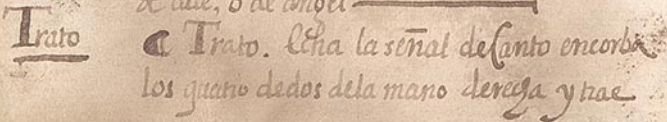 de aue, o de angel
Trato
Trato. Echa la señal de Santo encorba
los quatro dedos dela mano derecha y trae